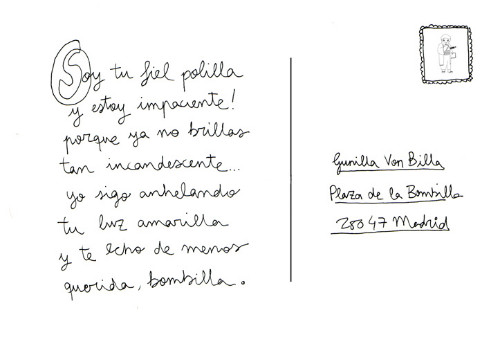 Soy tu fiel polilla
y estoy impaciente!
porque ya no brillas
tan incandescente...
yo sigo anhelando
tu luz amarilla
y te echo de menos
querida, bombilla.
Gunilla Von Billa
Plaza de la Bombilla
28047 Madrid